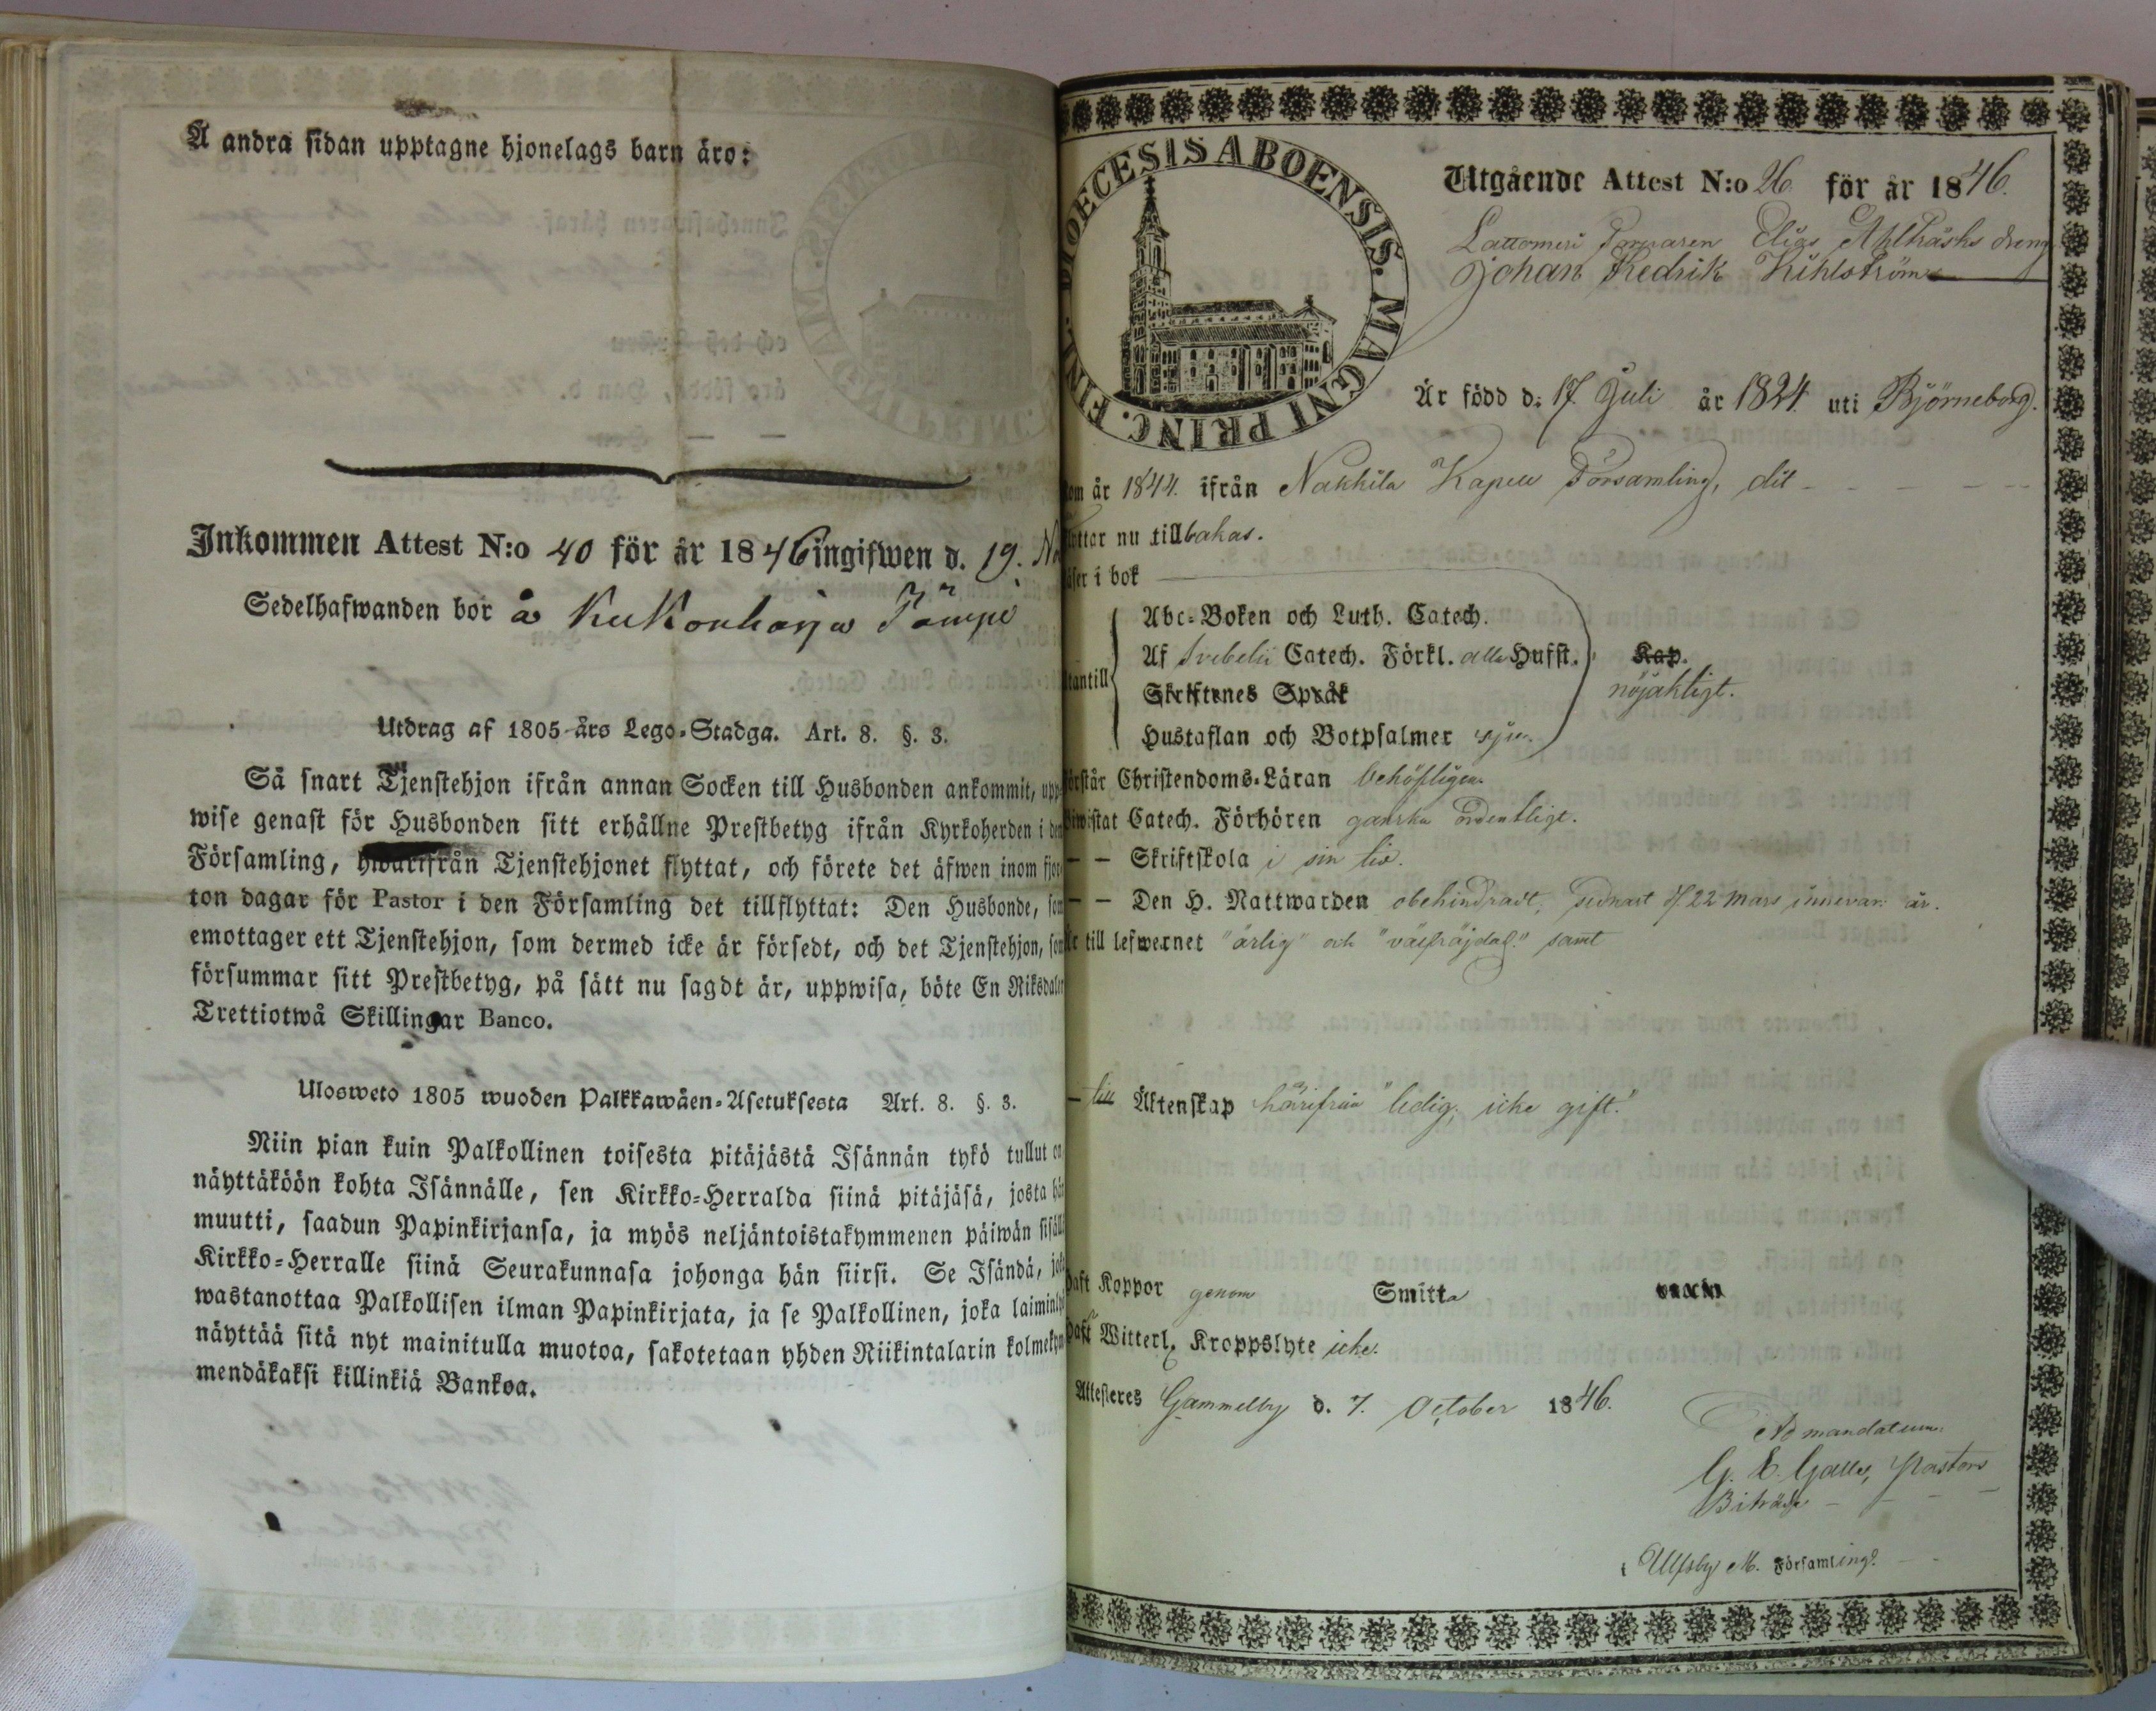 Å andra sidan upptagne hjonelags barn äro:
Inkommen Attest N:o 40 för år 1846 ingifwen d. 19. No
Sedelhafwanden bor å Kukonharja
Utdrag af 1805 års Lego-Stadga. Art. 8. §. 3.
Så snart Tjenstehjon ifrån annan Socken till Husbonden ankommit, upp-
wise genast för Husbonden sitt erhållne Prestbetyg ifrån Kyrkoherden i den
Församling, hwarifrån Tjenstehjonet flyttat, och förete det äfwen inom fjor-
ton dagar för Pastor i den Församling det tillflyttat: Den Husbonde, som
emottager ett Tjenstehjon, som dermed icke är försedt, och det Tjenstehjon, som
försummar sitt Prestbetyg, på sätt nu sagdt är, uppwisa, böte En Riksdaler
Trettiotwå Skillingar Banco.
Ulosweto 1805 wuoden Palkkawäen-Asetuksesta Art. 8. §. 3.
Niin pian kuin Palkollinen toisesta pitäjästä Isännän tykö tullut on
näyttäköön kohta Isännälle, sen Kirkko-Herralda siinä pitäjäsä, josta hän
muutti, saadun Papinkirjansa, ja myös neljäntoistakymmenen päiwän sisällä
Kirkko-Herralle siinä Seurakunnasa johonga hän siirsi. Se Isändä, joka
wastanottaa Palkollisen ilman Papinkirjata, ja se Palkollinen, joka laiminlyö
näyttää sitä nyt mainitulla muotoa, sakotetaan yhden Riikintalarin kolmekym-
mendäkaksi killinkiä Bankoa.
DIOECESIS ABOENSIS. MAGNI PRINC. FINL.
Utgående Attest N:o 26 för år 1846.
Lattomeri Torparen Elias Ahlträsks dreng
Johan Fredrik Kihlström
Är född d. 17. Juli år 1824. uti Björneborg.
kom år 1844. ifrån Nakkila Kapell Församling, dit
flyttar nu tillbakas.
Läser i bok
Abc-Boken och Luth. Catech.
Af Svebelii Catech. Förkl. alla Hufst. Kap.
utantill Skriftenes Språk nöjaktigt.
Hustaflan och Botpsalmer sju.
Förstår Christendoms-Läran behöfligen.
Biwistat Catech. Förhören ganska ordentligt.
— — Skriftskola i sin tid.
— — Den H. Nattwarden obehindradt, sednast d. 22 Mars innevar. år.
Är till lefwernet "ärlig" och "välfräjdad." samt
— till Äktenskap härifrån "ledig, icke gift."
Haft Koppor genom Smitta vaccin
Haft Witterl. Kroppslyte icke.
Attesteres Gammelby d. 7. October 1846.
Ad mandatum.
G. E. Pastors
Biträde
i Ulfsby M. Församling.